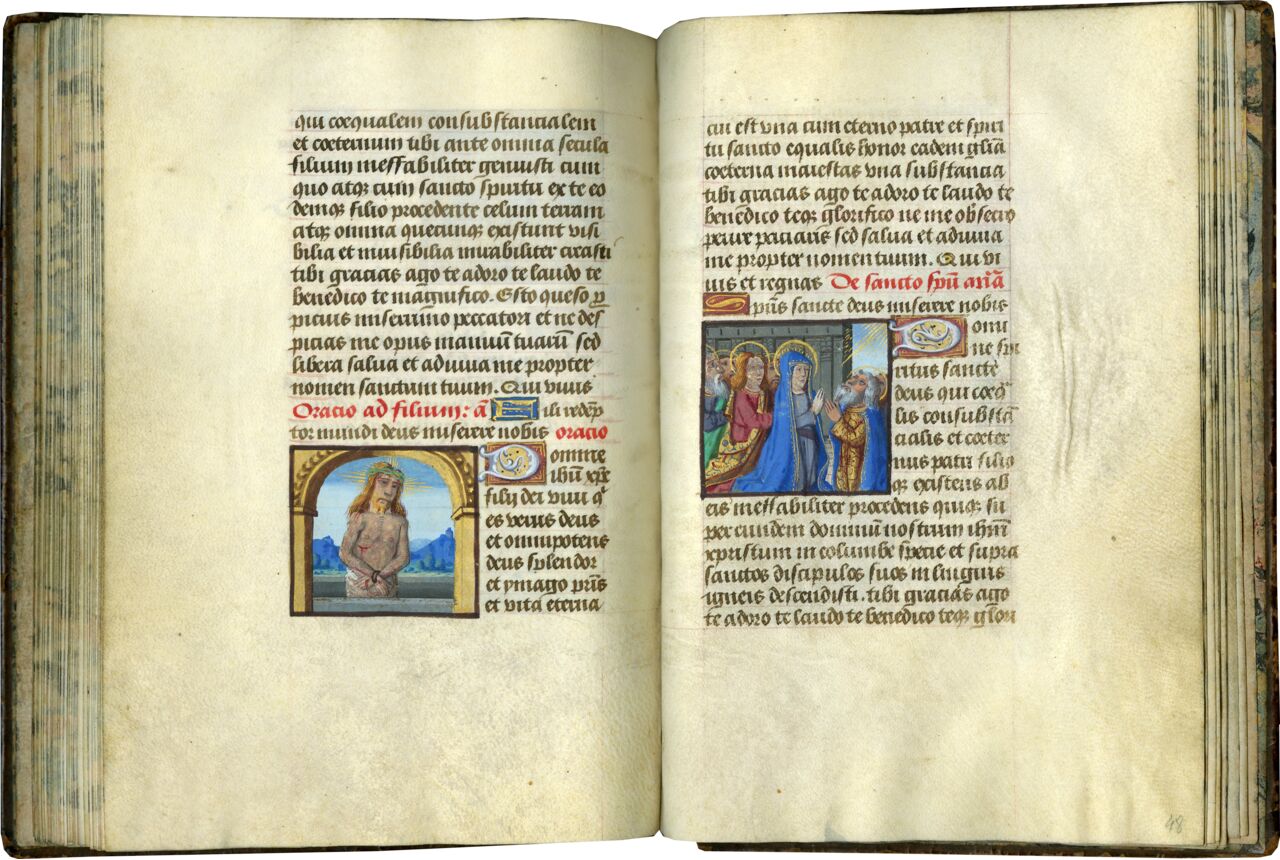 qui coequalem consubstancialem
et coeternum tibi ante omnia secula
filium ineffabiliter genuisti cum
quo atq; cum sancto spiritu ex te eo
demq; filio procedente celum terram
atq; omnia quecunq; existunt visi
bilia et invisibilia mirabiliter creasti
tibi gracias ago te adoro te laudo te
benedico te magnifico. Esto queso ꝓ
picius miserrimo peccatori et ne des
picias me opus manuū tuarū sed
libera salva et adiuva me propter
nomen sanctum tuum. Qui vivis
Oracio ad filium: ā Fili redēp
tor mundi deus miserere nobis oracio
Domine
ihū xp̄e
filij dei vivi q
es verus deus
et omnipotens
deus splendor
et ymago pr̄is
et vita eterna
cui est vna cum eterno patre et spiri
tu sancto equalis honor eadem gl̄ia
coeterna maiestas vna substancia
tibi gracias ago te adoro te laudo te
benedico teq; glorifico ne me obsecro
perire paciaris sed salva et adiuva
me propter nomen tuum. Qui vi
vis et regnas De sancto spū
Spūs sancte deus miserere nobis
Domi
ne spi
ritus sancte
deus qui coeq
lis consubstā
cialis et coeter
nus patri filio
q; existens ab
eis ineffabiliter procedens quiq; su
per eundem dominū nostrum ihm̄
xpristum in columbe specie et supra
sanctos discipulos suos in linguis
igneis descendisti. tibi gracias ago
te adoro te laudo te benedico teq; glori
48